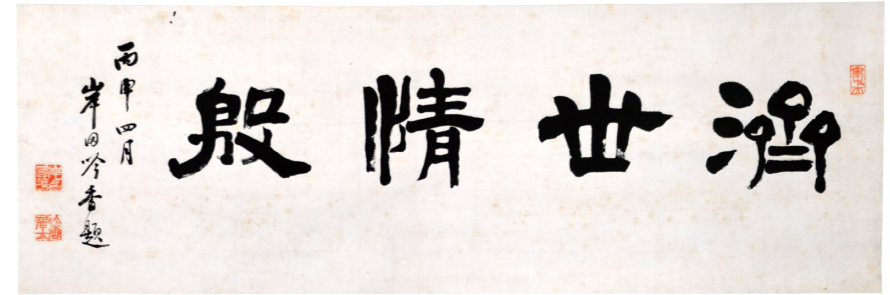 濟世情殷
丙申四月
岸田吟香題